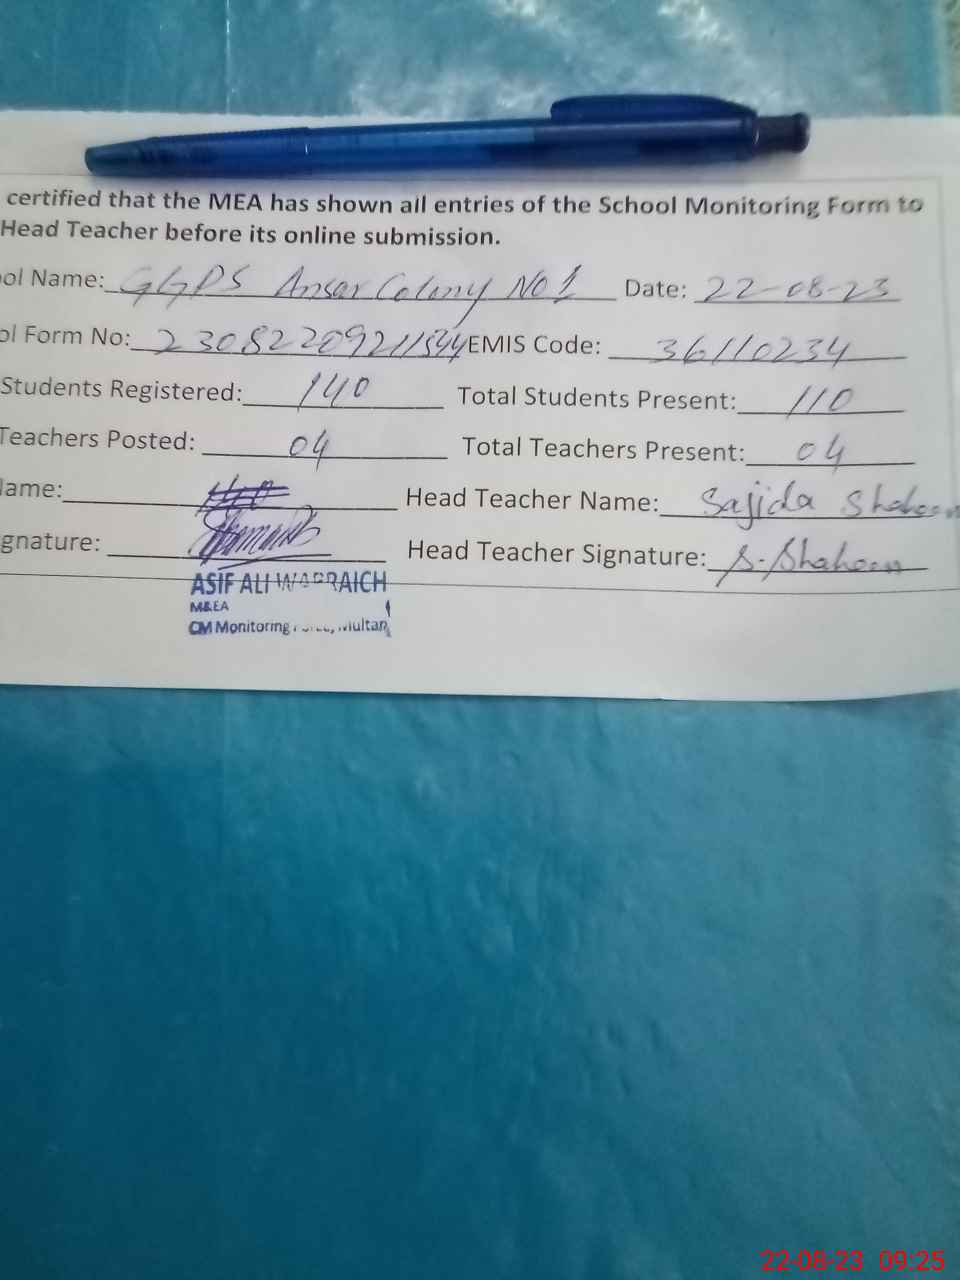 certified that the MEA has shown all entries of the School Monitoring Form to
Head Teacher before its online submission.
ool Name: GGPS Ansar Colony No 1 Date: 22-08-23
ol Form No: 230822092111544 EMIS Code: 36110234
Students Registered: 140 Total Students Present: 110
Teachers Posted: 04 Total Teachers Present: 04
Name: Head Teacher Name: Sajida Shaheen
gnature: Head Teacher Signature: S-Shaheen
ASIF ALI WARRAICH
M&EA
CM Monitoring Multan
22-08-23 09:25